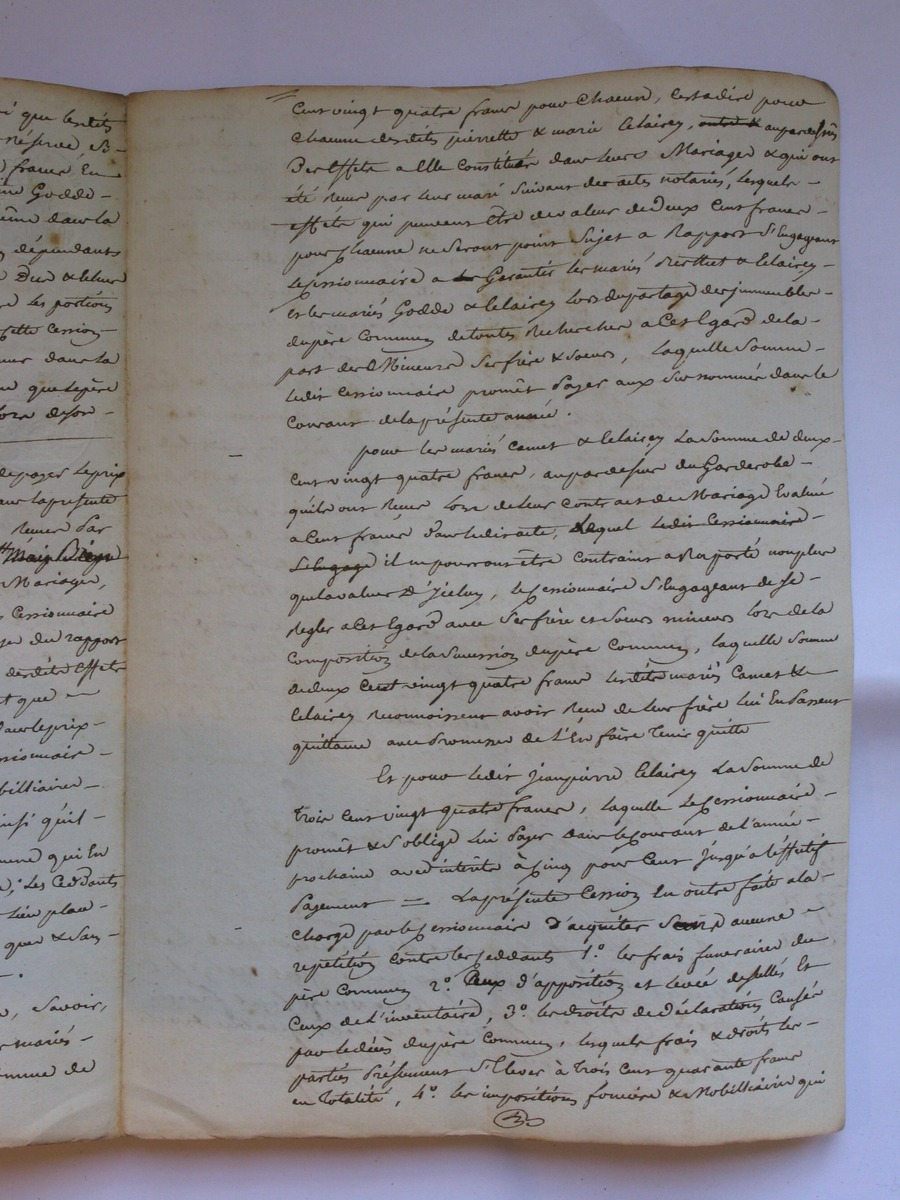 i que lesdits
réserve S-
francs En
Godde-
dans la
dépendants
Due &
les portions
cette Cession-
dans la
que le père
lors de son-
de payer le prix
la présente
Reçues Par
Mariages,
Cessionnaire
du rapport
desdits effets
t que —
le prix-
ssionnaire-
obilliaires-
insi qu'il-
qui En
Les Cedants
lieu place-
que & San-
Savoir,
mariés-
omme de
Cent vingt quatre francs pour Chacun, c'est a dire pour
Chacune desdites pierrette & marie Celairey, outre & au par dessus
Des Effets a Elle Constitués dans leurs Mariages & qui ont
été Reçus par leur mari Suivant des actes notariés, lesquels-
effets qui peuvent Etre de valeur de Deux Cent francs-
pour Chacune ne Seront point Sujet a Rapport S'Engageant
le Cessionnaire a Garantir les mariés & Celairey-
Et les mariés Godde & Celairey lors du partage des immeubles-
du père Commun de toutes Recherches a Cet Egard de la-
part des Mineurs Ses frère & Soeurs, laquelle Somme-
ledit Cessionnaire promèt Payer aux Sus nommés dans le
Courant de la présente année.
pour les mariés Camet & Celairey La Somme de deux-
Cent vingt quatre francs, au par dessus du Garderobe-
qu'ils ont Reçus lors de leur Contract de Mariage Evalué
a Cent francs Dans ledit acte, Lequel ledit Cessionnaire-
S'Engage il ne pourront être Contraint a Raporté non plus
que la valeur D'Icelui, le Cessionnaire S'Engageant de Se-
Regler a Cet Egard avec Ses frère et Soeurs mineurs lors de la
Composition de la Succession du père Commun, laquelle Somme
de deux Cent vingt quatre francs lesdits mariés Camet &
Celairey Reconnoissent avoir Reçu de leur frère lui En Passent
quittance avec Promesse de L'En faire Tenir quitte
Et pour ledit Jean pierre Celairey La Somme de
Trois Cent vingt quatre francs, laquelle le Cessionnaire-
promèt & S'oblige lui Payer Dans le Courant de l'année-
prochaine avec intérêts à Cinq pour Cent Jusqu'a l'effectif
Payement — La présente Cession En outre faite a la-
Charge par le Cessionnaire D'acquiter Sans aucune-
repetition Contre les Ceddants 1.° les frais funeraires du
père Commun 2.° Ceux d'apposition et levée de scellés Et
Ceux de L'inventaire, 3.° les droits de Déclarations Causés
par le décès du père Commun, lesquels frais & droits les-
parties Présument S'Elever à Trois Cent quarante francs
en Totalité, 4.° les impositions foncière & Mobilliaires qui